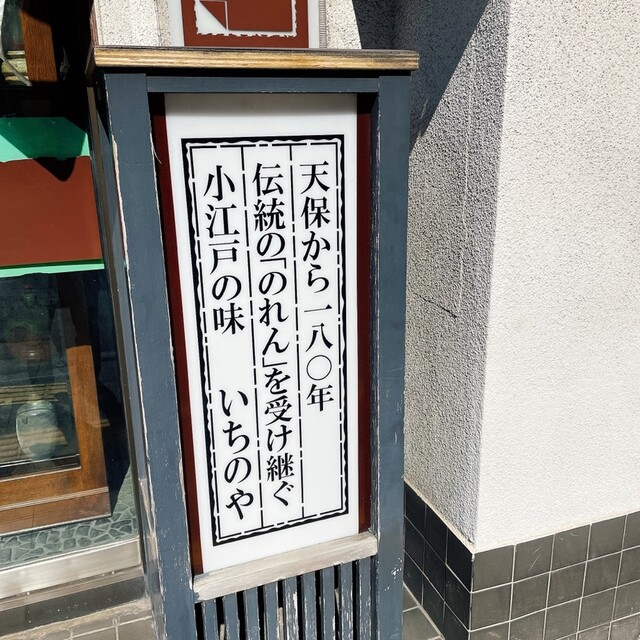 天保から一八〇年
伝統の「のれん」を受け継ぐ
小江戸の味　いちのや